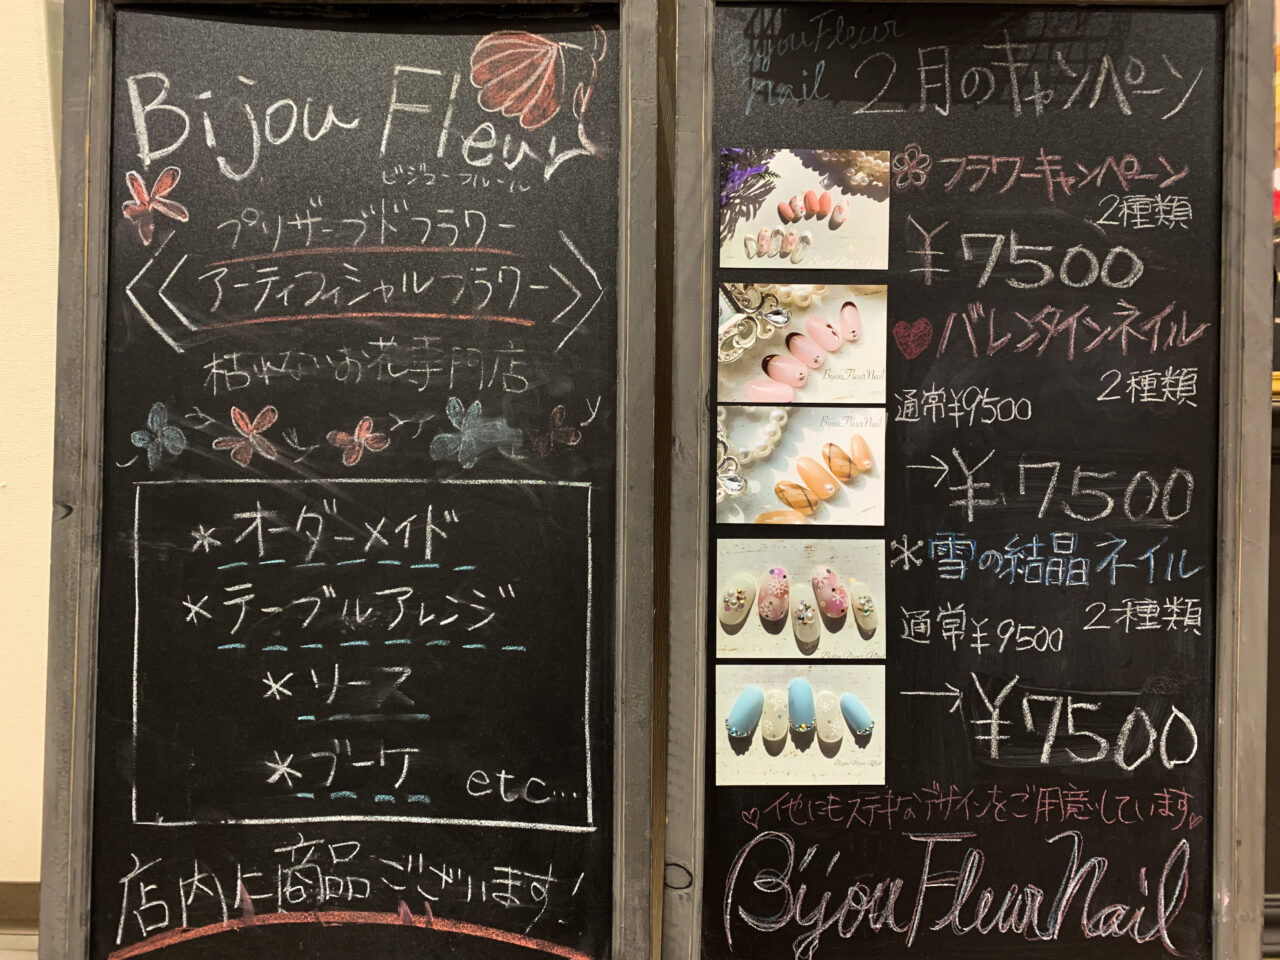 Bijou Fleur
ビジューフルール
プリザーブドフラワー
アーティフィシャルフラワー
枯れないお花専門店
*オーダーメイド
*テーブルアレンジ
*リース
*ブーケ etc…
店内に商品ございます!
Bijou Fleur
nail
2月のキャンペーン
フラワーキャンペーン
2種類
¥7500
バレンタインネイル
2種類
通常¥9500
→¥7500
*雪の結晶ネイル
2種類
通常¥9500
→¥7500
Bijou Fleur Nail
Bijou Fleur Nail
Bijou Fleur Nail
Bijou Fleur Nail
♡他にもステキなデザインをご用意しています♡
Bijou Fleur Nail